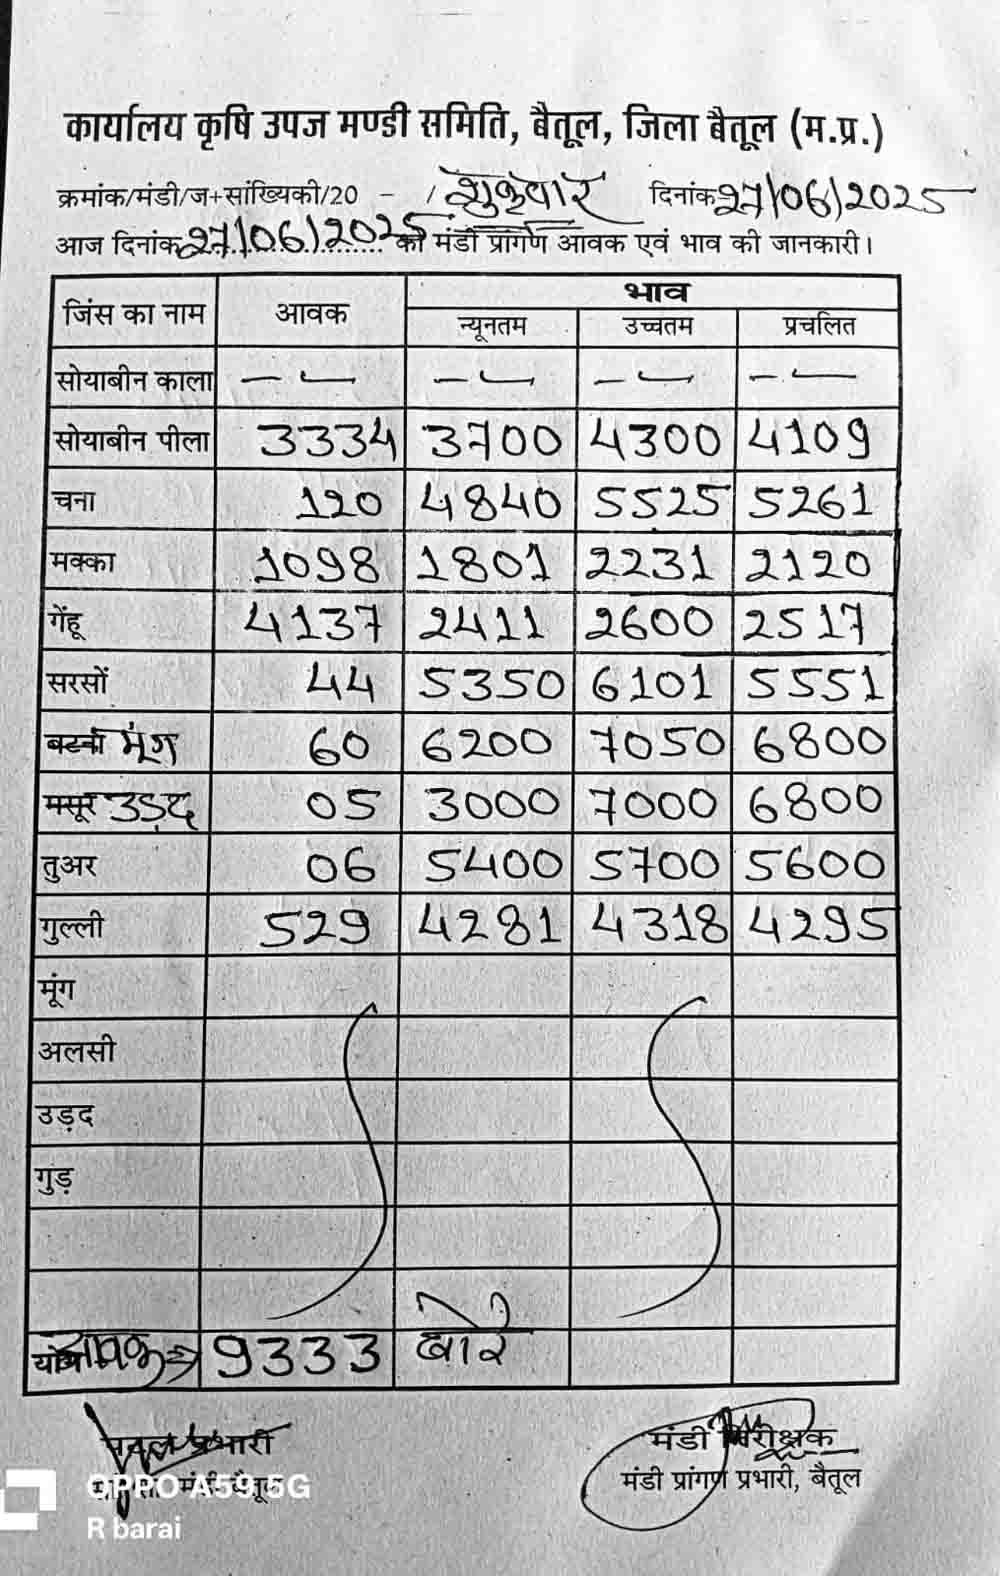 कार्यालय कृषि उपज मण्डी समिति, बैतूल, जिला बैतूल (म.प्र.)
क्रमांक/मंडी/ज+सांख्यिकी/20 - / शुक्रवार दिनांक 27/06/2025
आज दिनांक 27/06/2025 को मंडी प्रांगण आवक एवं भाव की जानकारी।
जिंस का नाम आवक भाव
न्यूनतम उच्चतम प्रचलित
सोयाबीन काला -- -- -- --
सोयाबीन पीला 3334 3700 4300 4109
चना 120 4840 5525 5261
मक्का 1098 1801 2231 2120
गेंहू 4137 2411 2600 2517
सरसों 44 5350 6101 5551
बटना मूंग 60 6200 7050 6800
मसूर उड़द 05 3000 7000 6800
तुअर 06 5400 5700 5600
गुल्ली 529 4281 4318 4295
मूंग
अलसी
उड़द
गुड़
आवक ⇒ 9333 बोरे
प्रभारी मंडी निरीक्षक
मंडी बैतूल मंडी प्रांगण प्रभारी, बैतूल
OPPO A59 5G
R barai